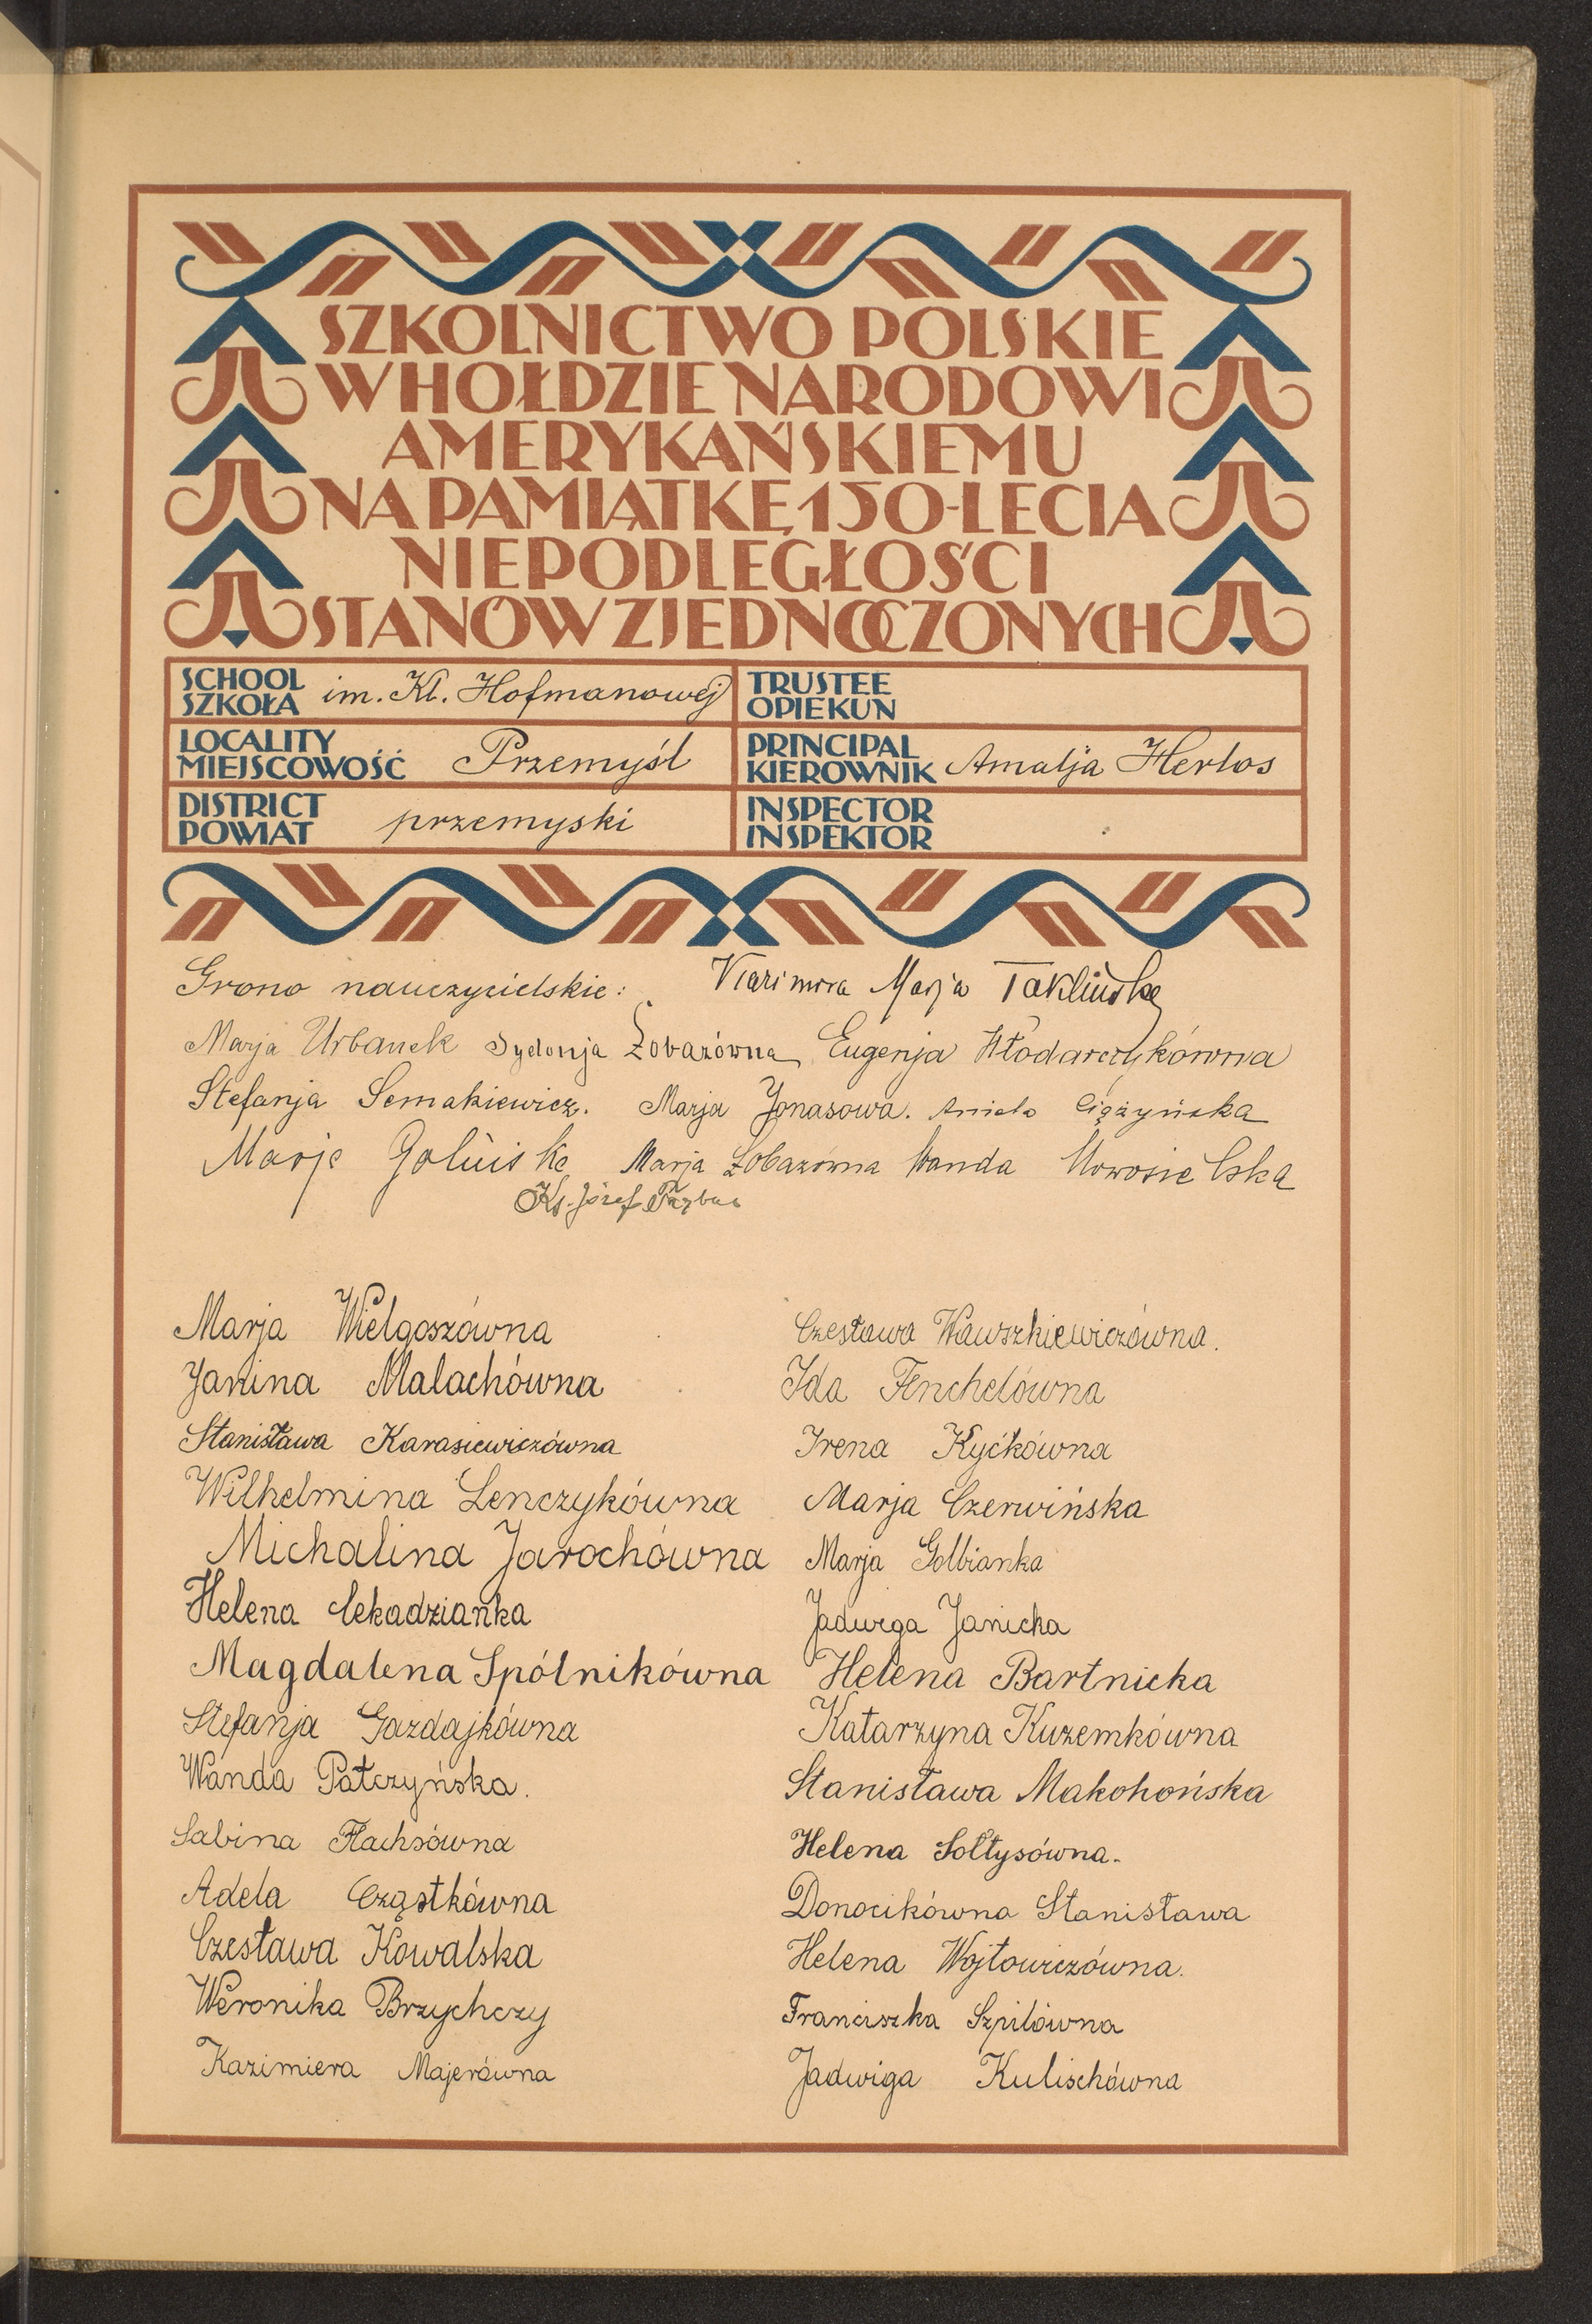 SZKOLNICTWO POLSKIE
W HOŁDZIE NARODOWI
AMERYKAŃSKIEMU
NA PAMIĄTKĘ 150-LECIA
NIEPODLEGŁOŚCI
STANÓW ZJEDNOCZONYCH
SCHOOL
SZKOŁA im. Kl. Hofmanowej
TRUSTEE
OPIEKUN
LOCALITY
MIEJSCOWOŚĆ Przemyśl
PRINCIPAL
KIEROWNIK Amalja Herlos
DISTRICT
POWIAT przemyski
INSPECTOR
INSPEKTOR
Grono nauczycielskie: Marja
Marja Urbanek Sydonja Łobazówna Eugenja Włodarczykówna
Stefanja Semakiewicz. Marja Jonasowa. Aniela Ciążyńska
Marja Marja Łobazówna Wanda Nowosielska
Ks. Józef
Marja Wielgoszówna
Janina Malachówna
Stanisława Karasiewiczówna
Wilhelmina Lenczykówna
Michalina Jarochówna
Helena Cekadzianka
Magdalena Spólnikówna
Stefanja Gazdajkówna
Wanda Patczyńska.
Sabina Flachsówna
Adela Cząstkówna
Czesława Kowalska
Weronika Brzychczy
Kazimiera Majerówna
Czesława Wawszkiewiczówna.
Ida Fenchelówna
Irena Kyćkówna
Marja Czerwińska
Marja Golbianka
Jadwiga Janicka
Helena Bartnicka
Katarzyna Kuzemkówna
Stanisława Makohońska
Helena Sołtysówna.
Donocikówna Stanisława
Helena Wojtowiczówna.
Franciszka Szpilówna
Jadwiga Kulischówna